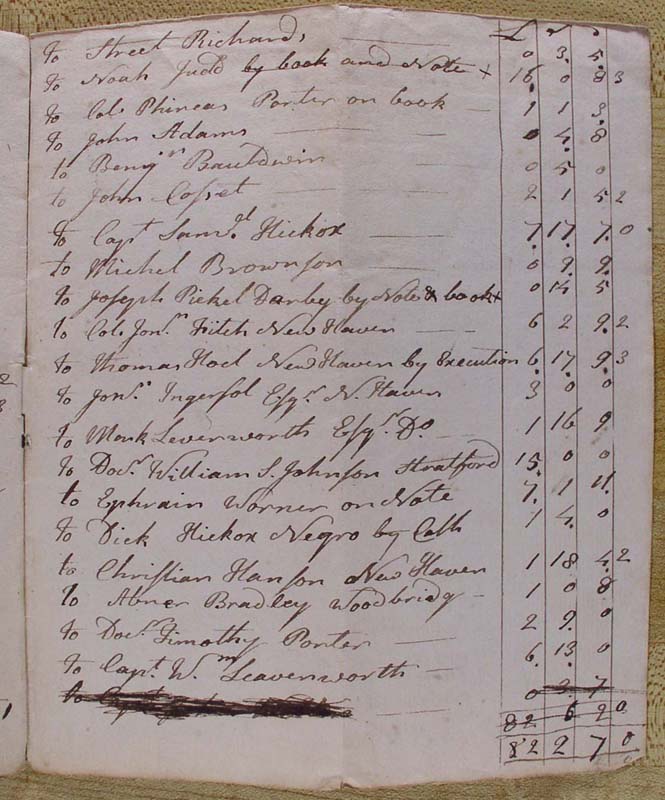 £ s d
To Street Richards 0 3 5
To Noah Judd by book and Note + 16 0 8 3
To Col. Phineas Porter on book 1 1 3
To John Adams 0 4 8
To Benjn Bauldwin 0 5 0
To John Cosset 2 1 5 2
To Capt Saml Hickox 7 17 7 0
To Michel Brownson 0 9 9
To Joseph Pickel Darby by Note & book + 0 14 5
To Col. Jonn Fitch New Haven 6 2 9 2
To Thomas Hoel New Haven by Execution 6 17 9 3
To Jonn Ingersol Esqr N. Haven 3 0 0
To Mark Levenworth Esqr Do 1 16 9
To Docr William S. Johnson Stratford 15 0 0
To Ephraim Worner on Note 7 1 11
To Dick Hickox Negro by Cash 1 4 0
To Christian Hanson New Haven 1 18 4 2
To Abner Bradley Woodbridg 1 0 8
To Docr Timothy Porter 2 9 0
To Capt. Wm Leavenworth 6 13 0
To 0 3 7
82 6 2 0
82 2 7 0
2
3
1